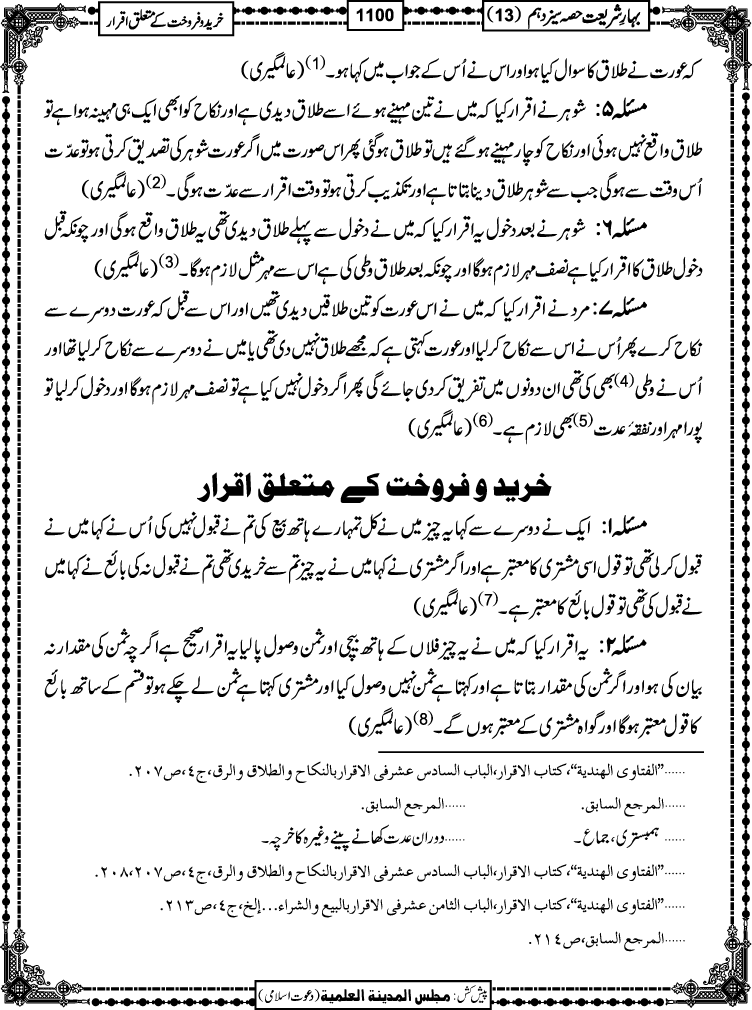 بہارِ شریعت حصہ سیزدہم (13)
1100
خرید و فروخت کے متعلق اقرار
کہ عورت نے طلاق کا سوال کیا ہو اور اس نے اُس کے جواب میں کہا ہو۔(1) (عالمگیری)
مسئلہ ۵: شوہر نے اقرار کیا کہ میں نے تین مہینے ہوئے اسے طلاق دیدی ہے اور نکاح کو ابھی ایک ہی مہینہ ہوا ہے تو
طلاق واقع نہیں ہوئی اور نکاح کو چار مہینے ہو گئے ہیں تو طلاق ہوگئی پھر اس صورت میں اگر عورت شوہر کی تصدیق کرتی ہو تو عدّت
اُس وقت سے ہوگی جب سے شوہر طلاق دینا بتاتا ہے اور تکذیب کرتی ہو تو وقت اقرار سے عدّت ہوگی۔(2) (عالمگیری)
مسئلہ ۶: شوہر نے بعد دخول یہ اقرار کیا کہ میں نے دخول سے پہلے طلاق دیدی تھی یہ طلاق واقع ہوگی اور چونکہ قبل
دخول طلاق کا اقرار کیا ہے نصف مہر لازم ہوگا اور چونکہ بعد طلاق وطی کی ہے اس سے مہر مثل لازم ہوگا۔(3) (عالمگیری)
مسئلہ ۷: مرد نے اقرار کیا کہ میں نے اس عورت کو تین طلاقیں دیدی تھیں اور اس سے قبل کہ عورت دوسرے سے
نکاح کرے پھر اُس نے اس سے نکاح کر لیا اور عورت کہتی ہے کہ مجھے طلاق نہیں دی تھی یا میں نے دوسرے سے نکاح کر لیا تھا اور
اُس نے وطی(4) بھی کی تھی ان دونوں میں تفریق کر دی جائے گی پھر اگر دخول نہیں کیا ہے تو نصف مہر لازم ہوگا اور دخول کر لیا تو
پورا مہر اور نفقۂ عدت(5) بھی لازم ہے۔(6) (عالمگیری)
خرید و فروخت کے متعلق اقرار
مسئلہ ۱: ایک نے دوسرے سے کہا یہ چیز میں نے کل تمہارے ہاتھ بیع کی تم نے قبول نہیں کی اُس نے کہا میں نے
قبول کر لی تھی تو قول اسی مشتری کا معتبر ہے اور اگر مشتری نے کہا میں نے یہ چیز تم سے خریدی تھی تم نے قبول نہ کی بائع نے کہا میں
نے قبول کی تھی تو قول بائع کا معتبر ہے۔(7) (عالمگیری)
مسئلہ ۲: یہ اقرار کیا کہ میں نے یہ چیز فلاں کے ہاتھ بیچی اور ثمن وصول پالیا یہ اقرار صحیح ہے اگرچہ ثمن کی مقدار نہ
بیان کی ہو اور اگر ثمن کی مقدار بتاتا ہے اور کہتا ہے ثمن نہیں وصول کیا اور مشتری کہتا ہے ثمن لے چکے ہو تو قسم کے ساتھ بائع
کا قول معتبر ہوگا اور گواہ مشتری کے معتبر ہوں گے۔(8) (عالمگیری)
......”الفتاوى الهندية“، كتاب الاقرار، الباب السادس عشر فى الاقرار بالنكاح والطلاق والرق، ج٤، ص٢٠٧.
......المرجع السابق. ......المرجع السابق.
......ہمبستری، جماع۔ ......دوران عدت کھانے پینے وغیرہ کا خرچہ۔
......”الفتاوى الهندية“، كتاب الاقرار، الباب السادس عشر فى الاقرار بالنكاح والطلاق والرق، ج٤، ص٢٠٧، ٢٠٨.
......”الفتاوى الهندية“، كتاب الاقرار، الباب الثامن عشر فى الاقرار بالبيع والشراء... إلخ، ج٤، ص٢١٣.
......المرجع السابق، ص٢١٤.
پیش کش: مجلس المدینة العلمیة (دعوت اسلامی)